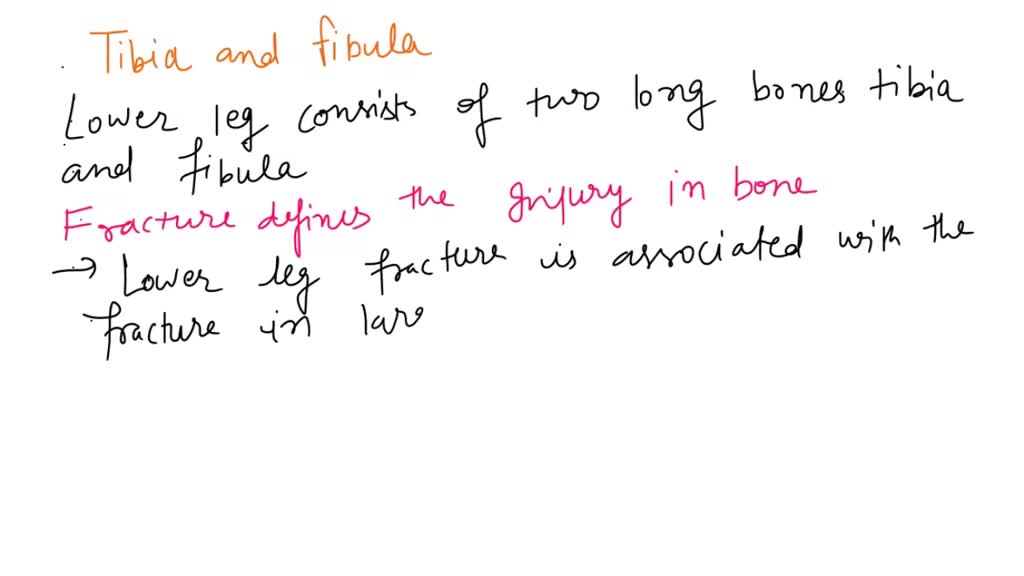 Tibia and fibula
Lower leg consists of two long bones tibia
and fibula
Fracture defines the Injury in bone
→ Lower leg fracture is associated with the
fracture in lar